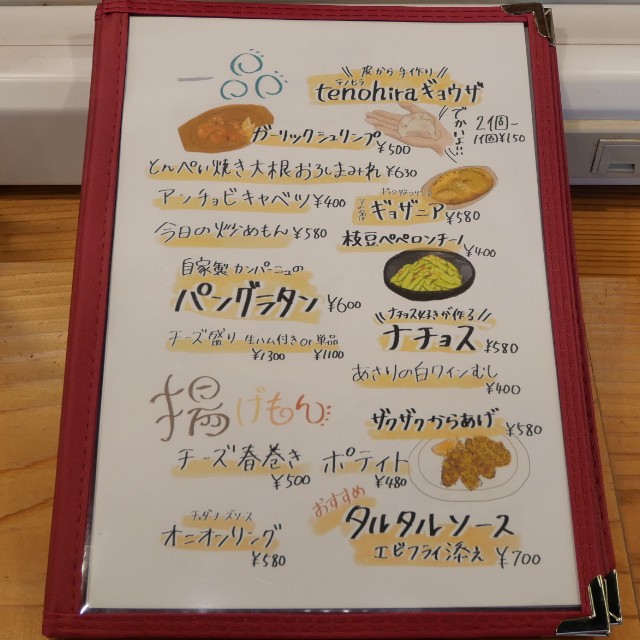 一品
皮から手作り
テノヒラ
tenohiraギョウザ
でかいよ!!
2個~
1個¥150
ガーリックシュリンプ
¥500
とんぺい焼き大根おろしまみれ ¥630
アンチョビキャベツ ¥400
ギョザニア ¥580
今日の炒めもん ¥580
枝豆ペペロンチーノ
¥400
自家製カンパーニュの
パングラタン ¥600
チーズ盛り 生ハム付き or 単品
¥1300 ¥1100
ナチョス好きが作る
ナチョス ¥580
あさりの白ワインむし
¥400
揚げもん
ザクザクからあげ ¥580
チーズ春巻き
¥500
ポテイト
¥480
チェダーチーズソース
オニオンリング
¥580
おすすめ
タルタルソース
エビフライ添え ¥700